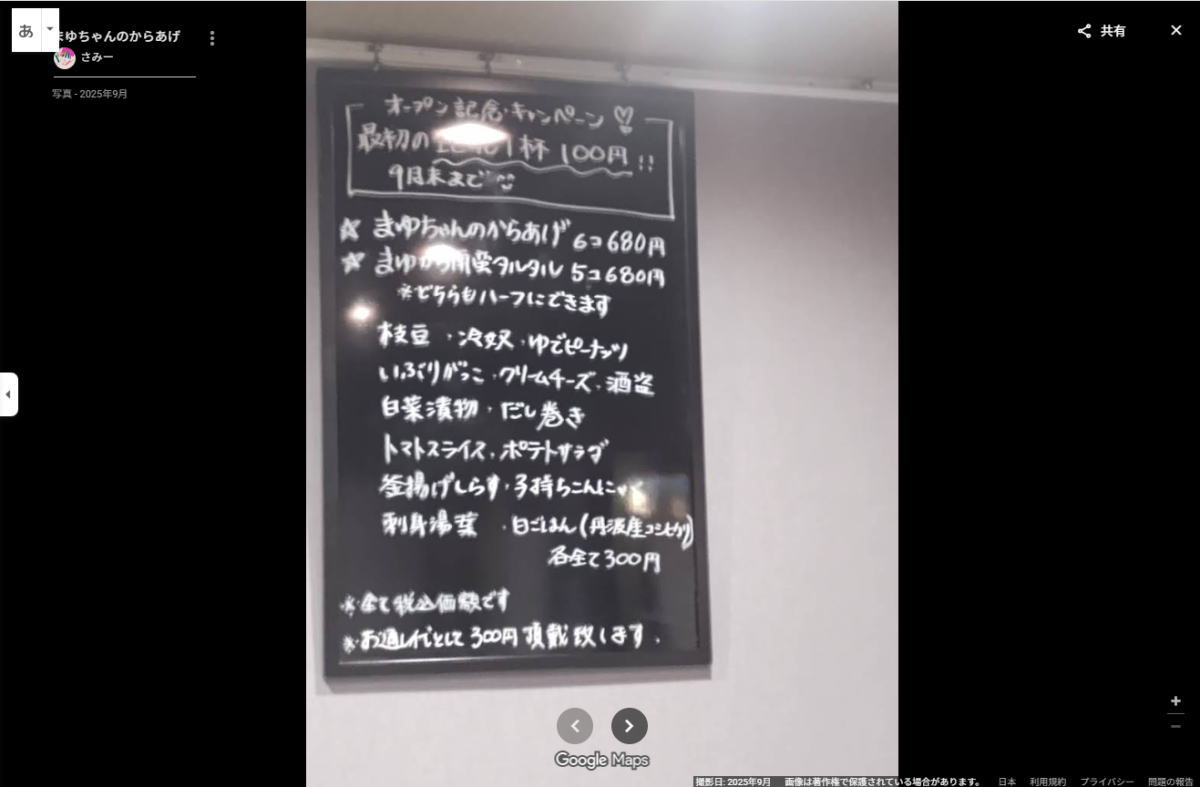 あ
まゆちゃんのからあげ
さみー
写真 - 2025年9月
共有
オープン記念・キャンペーン
最初の 1杯 100円!!
9月末まで
☆ まゆちゃんのからあげ 6コ 680円
☆ まゆから南蛮タルタル 5コ 680円
※どちらもハーフにできます
枝豆 ・冷奴・ゆでピーナッツ
いぶりがっこ・クリームチーズ・酒盗
白菜漬物・だし巻き
トマトスライス・ポテトサラダ
釜揚げしらす・子持ちこんにゃく
刺身湯葉 ・白ごはん(丹波産コシヒカリ)
各全て300円
※全て税込価額です
※お通し代として300円頂戴致します.
Google Maps
撮影日: 2025年9月 画像は著作権で保護されている場合があります。 日本 利用規約 プライバシー 問題の報告